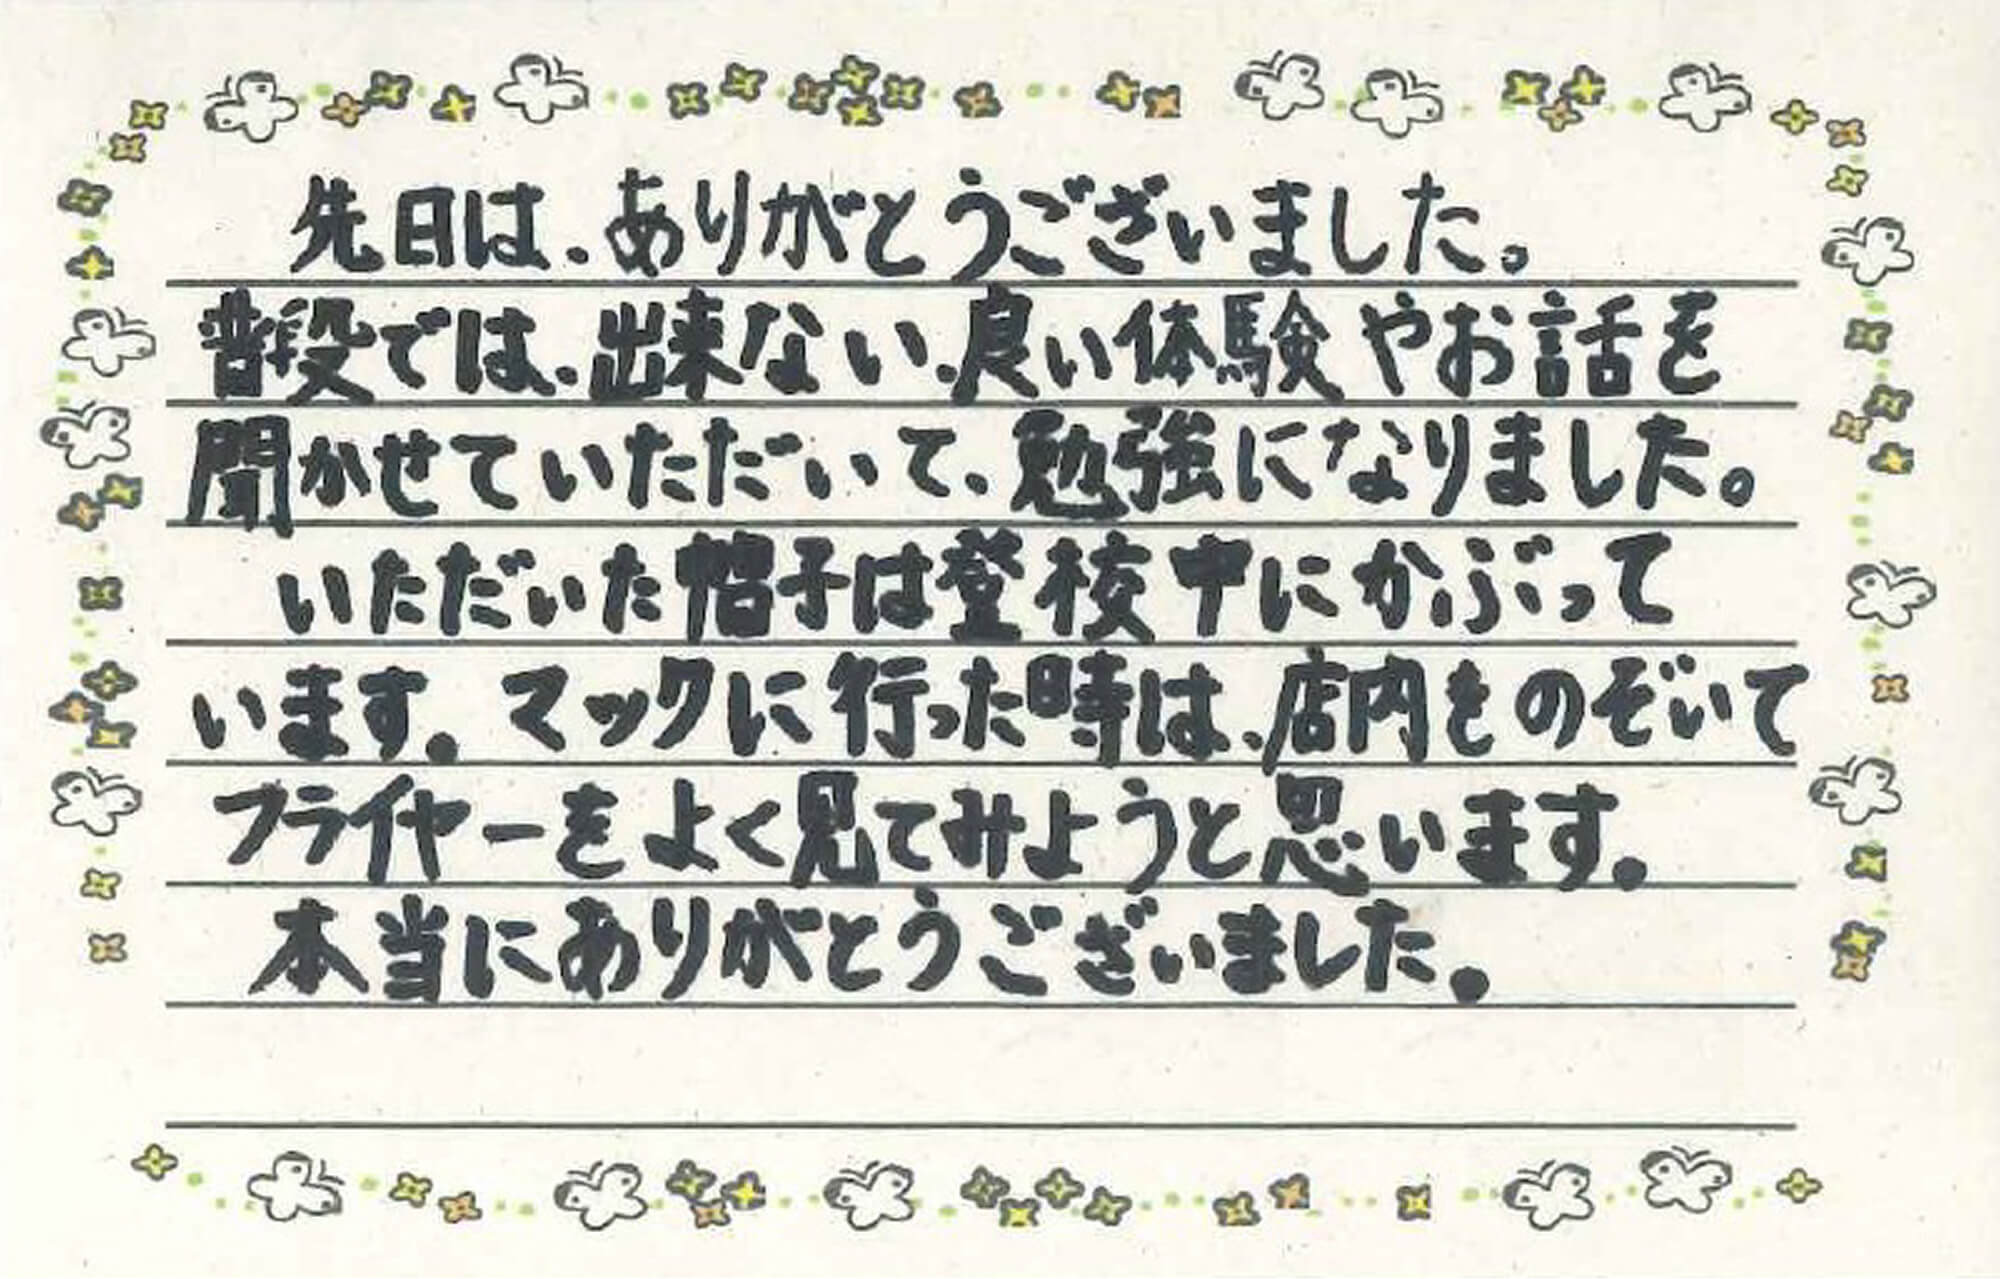 先日は、ありがとうございました。
普段では、出来ない、良い体験やお話を
聞かせていただいて、勉強になりました。
いただいた帽子は登校中にかぶって
います。マックに行った時は、店内をのぞいて
フライヤーをよく見てみようと思います。
本当にありがとうございました。